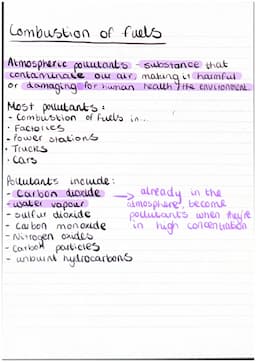 Combustion of fuels
Atmospheric pollutants - substance that
contaminate our air, making it harmful
or damaging for human health / the environment.
Most pollutants:
- Combustion of fuels in...
· Factories
· Power stations
· Trucks
· Cars
Pollutants include:
- Carbon dioxide
- water vapour
→ already in the
atmosphere, become
pollutants when they're
in high concentration
- sulfur dioxide
- Carbon monoxide
- Nitrogen oxides
- Carbon particles
- unburnt hydrocarbons